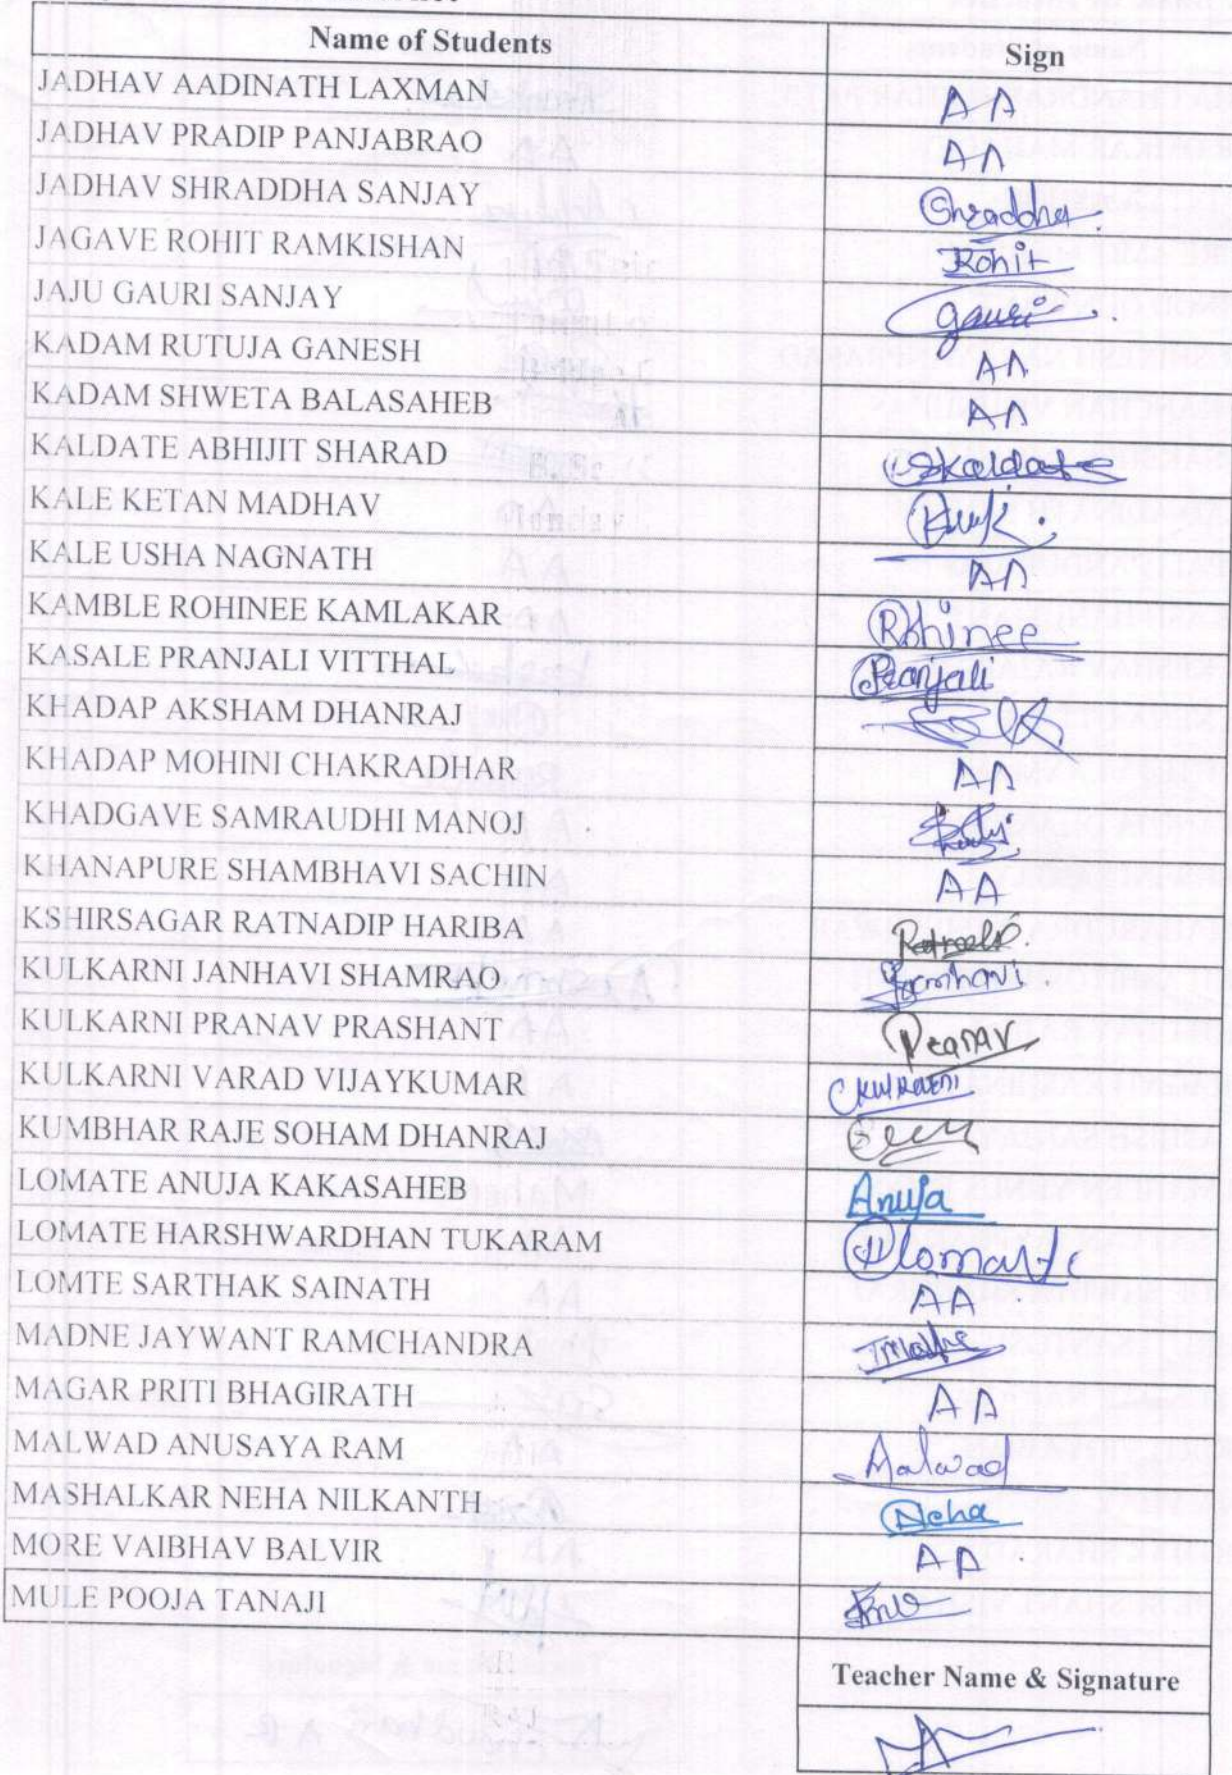 Name of Students Sign
JADHAV AADINATH LAXMAN AA
JADHAV PRADIP PANJABRAO AA
JADHAV SHRADDHA SANJAY Shraddha
JAGAVE ROHIT RAMKISHAN Rohit
JAJU GAURI SANJAY Gauri
KADAM RUTUJA GANESH AA
KADAM SHWETA BALASAHEB AA
KALDATE ABHIJIT SHARAD Skaldate
KALE KETAN MADHAV
KALE USHA NAGNATH AA
KAMBLE ROHINEE KAMLAKAR Rohinee
KASALE PRANJALI VITTHAL Pranjali
KHADAP AKSHAM DHANRAJ
KHADAP MOHINI CHAKRADHAR AA
KHADGAVE SAMRAUDHI MANOJ
KHANAPURE SHAMBHAVI SACHIN AA
KSHIRSAGAR RATNADIP HARIBA
KULKARNI JANHAVI SHAMRAO Janhavi
KULKARNI PRANAV PRASHANT Pranav
KULKARNI VARAD VIJAYKUMAR Kulkarni
KUMBHAR RAJE SOHAM DHANRAJ
LOMATE ANUJA KAKASAHEB Anuja
LOMATE HARSHWARDHAN TUKARAM Hlomate
LOMTE SARTHAK SAINATH AA
MADNE JAYWANT RAMCHANDRA
MAGAR PRITI BHAGIRATH AA
MALWAD ANUSAYA RAM Malwad
MASHALKAR NEHA NILKANTH Neha
MORE VAIBHAV BALVIR AA
MULE POOJA TANAJI
Teacher Name & Signature